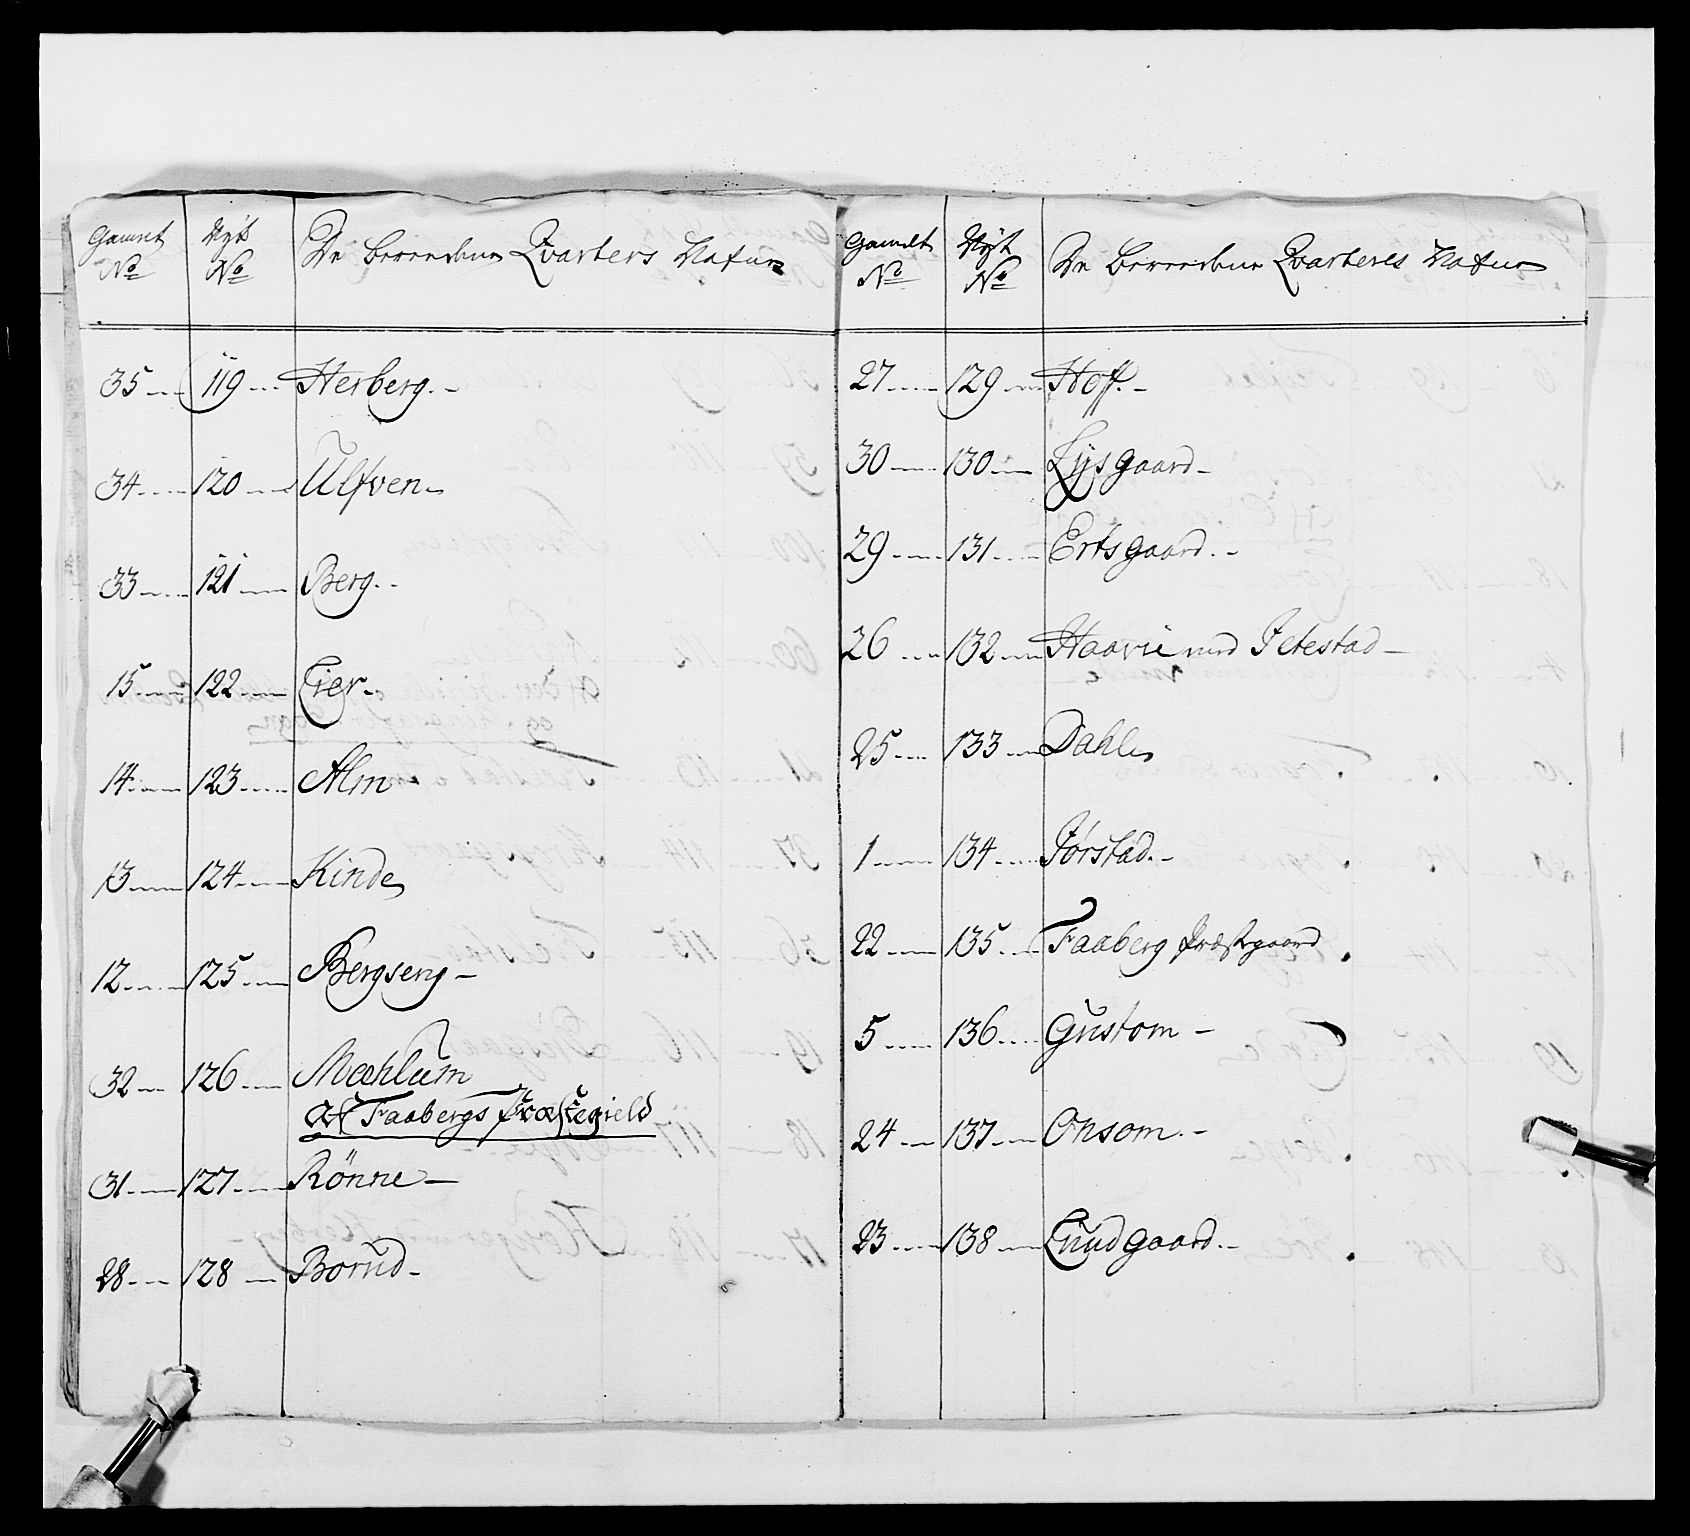 Gamt No Nyt No De berendene Qvarters Nafne
35 119 Herberg.
34 120 Ulfven
33 121 Berg.
15 122 Lier
14 123 Alm
13 124 Kinde
12 125 Bergseng
32 126 Mæhlum
Af Faabergs Præstegield
31 127 Rönne
28 128 Borud
Gamlt No Nyt No De berendene Qvarteres Nafne
27 129 Hoff.
30 130 Lysgaard
29 131 Ertsgaard.
26 132 Haavie med Jetestad
25 133 Dahle
1 134 Jørstad.
22 135 Faaberg Præstgaard
5 136 Gustom
24 137 Onsom.
23 138 Lundgaard.